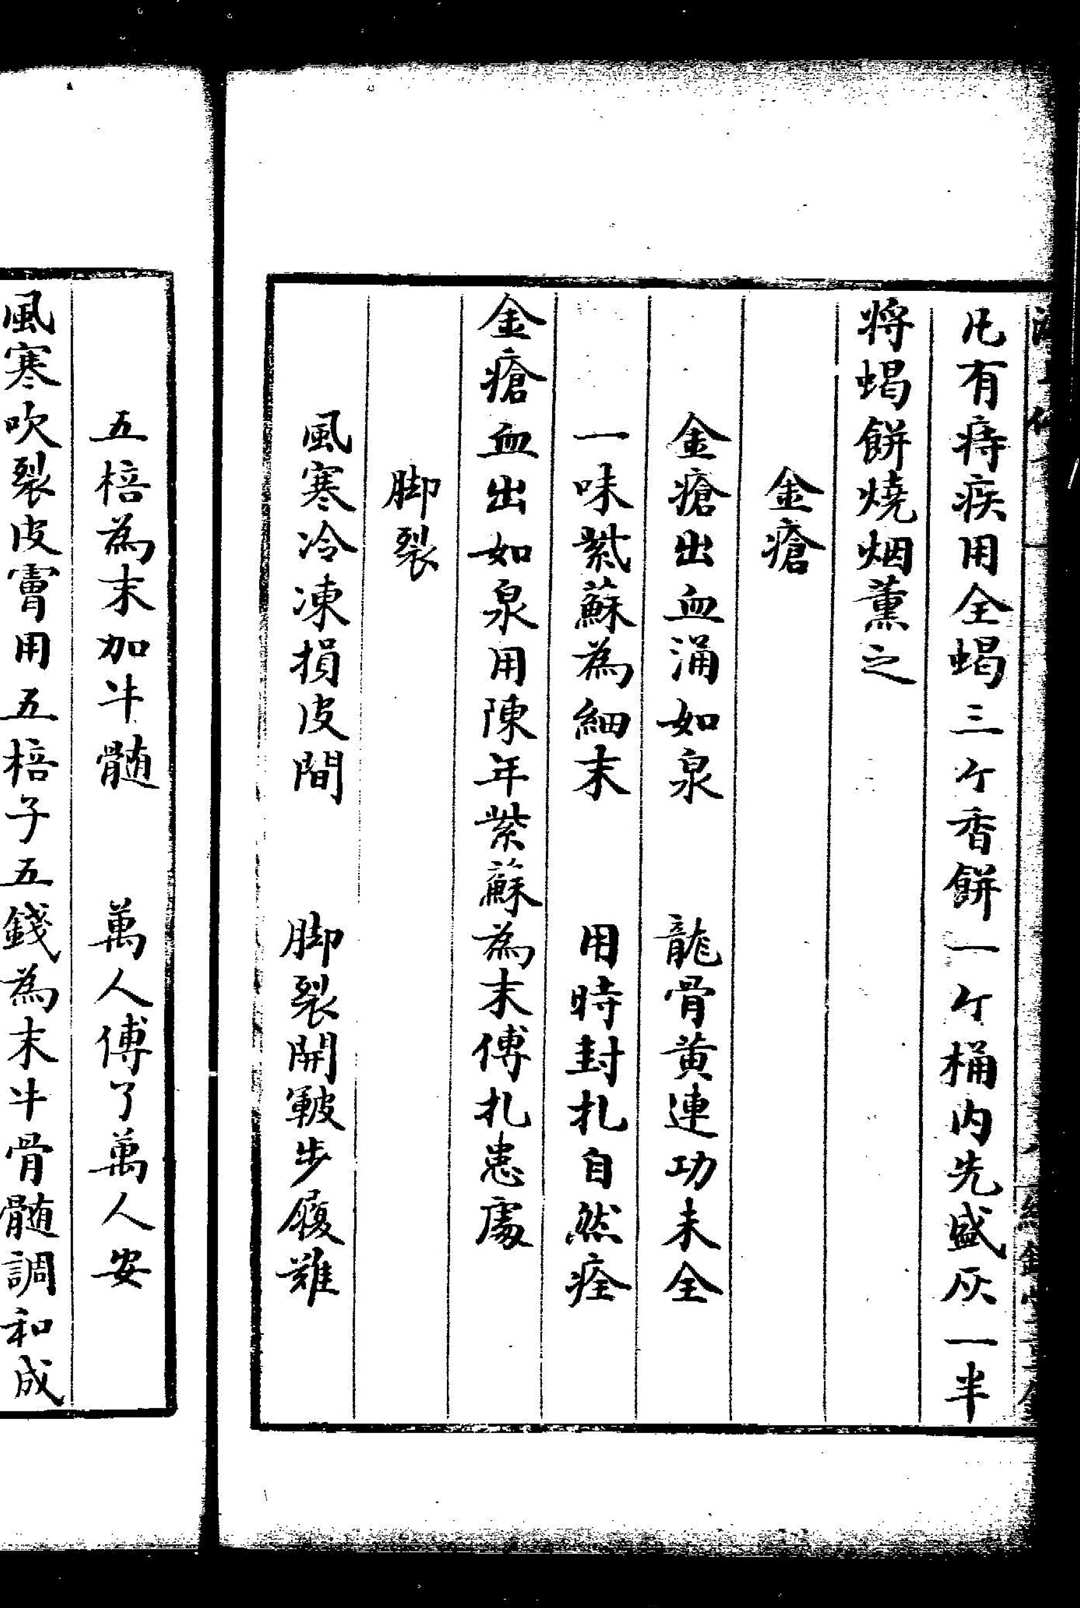 凡有痔疾用全蝎三个香餅一个桶内先盛灰一半
将蝎餅燒烟薰之
金瘡
金瘡出血涌如泉　龍骨黄連功未全
一味紫蘇為細末　用時封扎自然痊
金瘡血出如泉用陳年紫蘇為末傅扎患處
脚裂
風寒冷凍損皮間　脚裂開皸步履難
五棓為末加牛髓　萬人傅了萬人安
風寒吹裂皮膚用五棓子五錢為末牛骨髓調和成